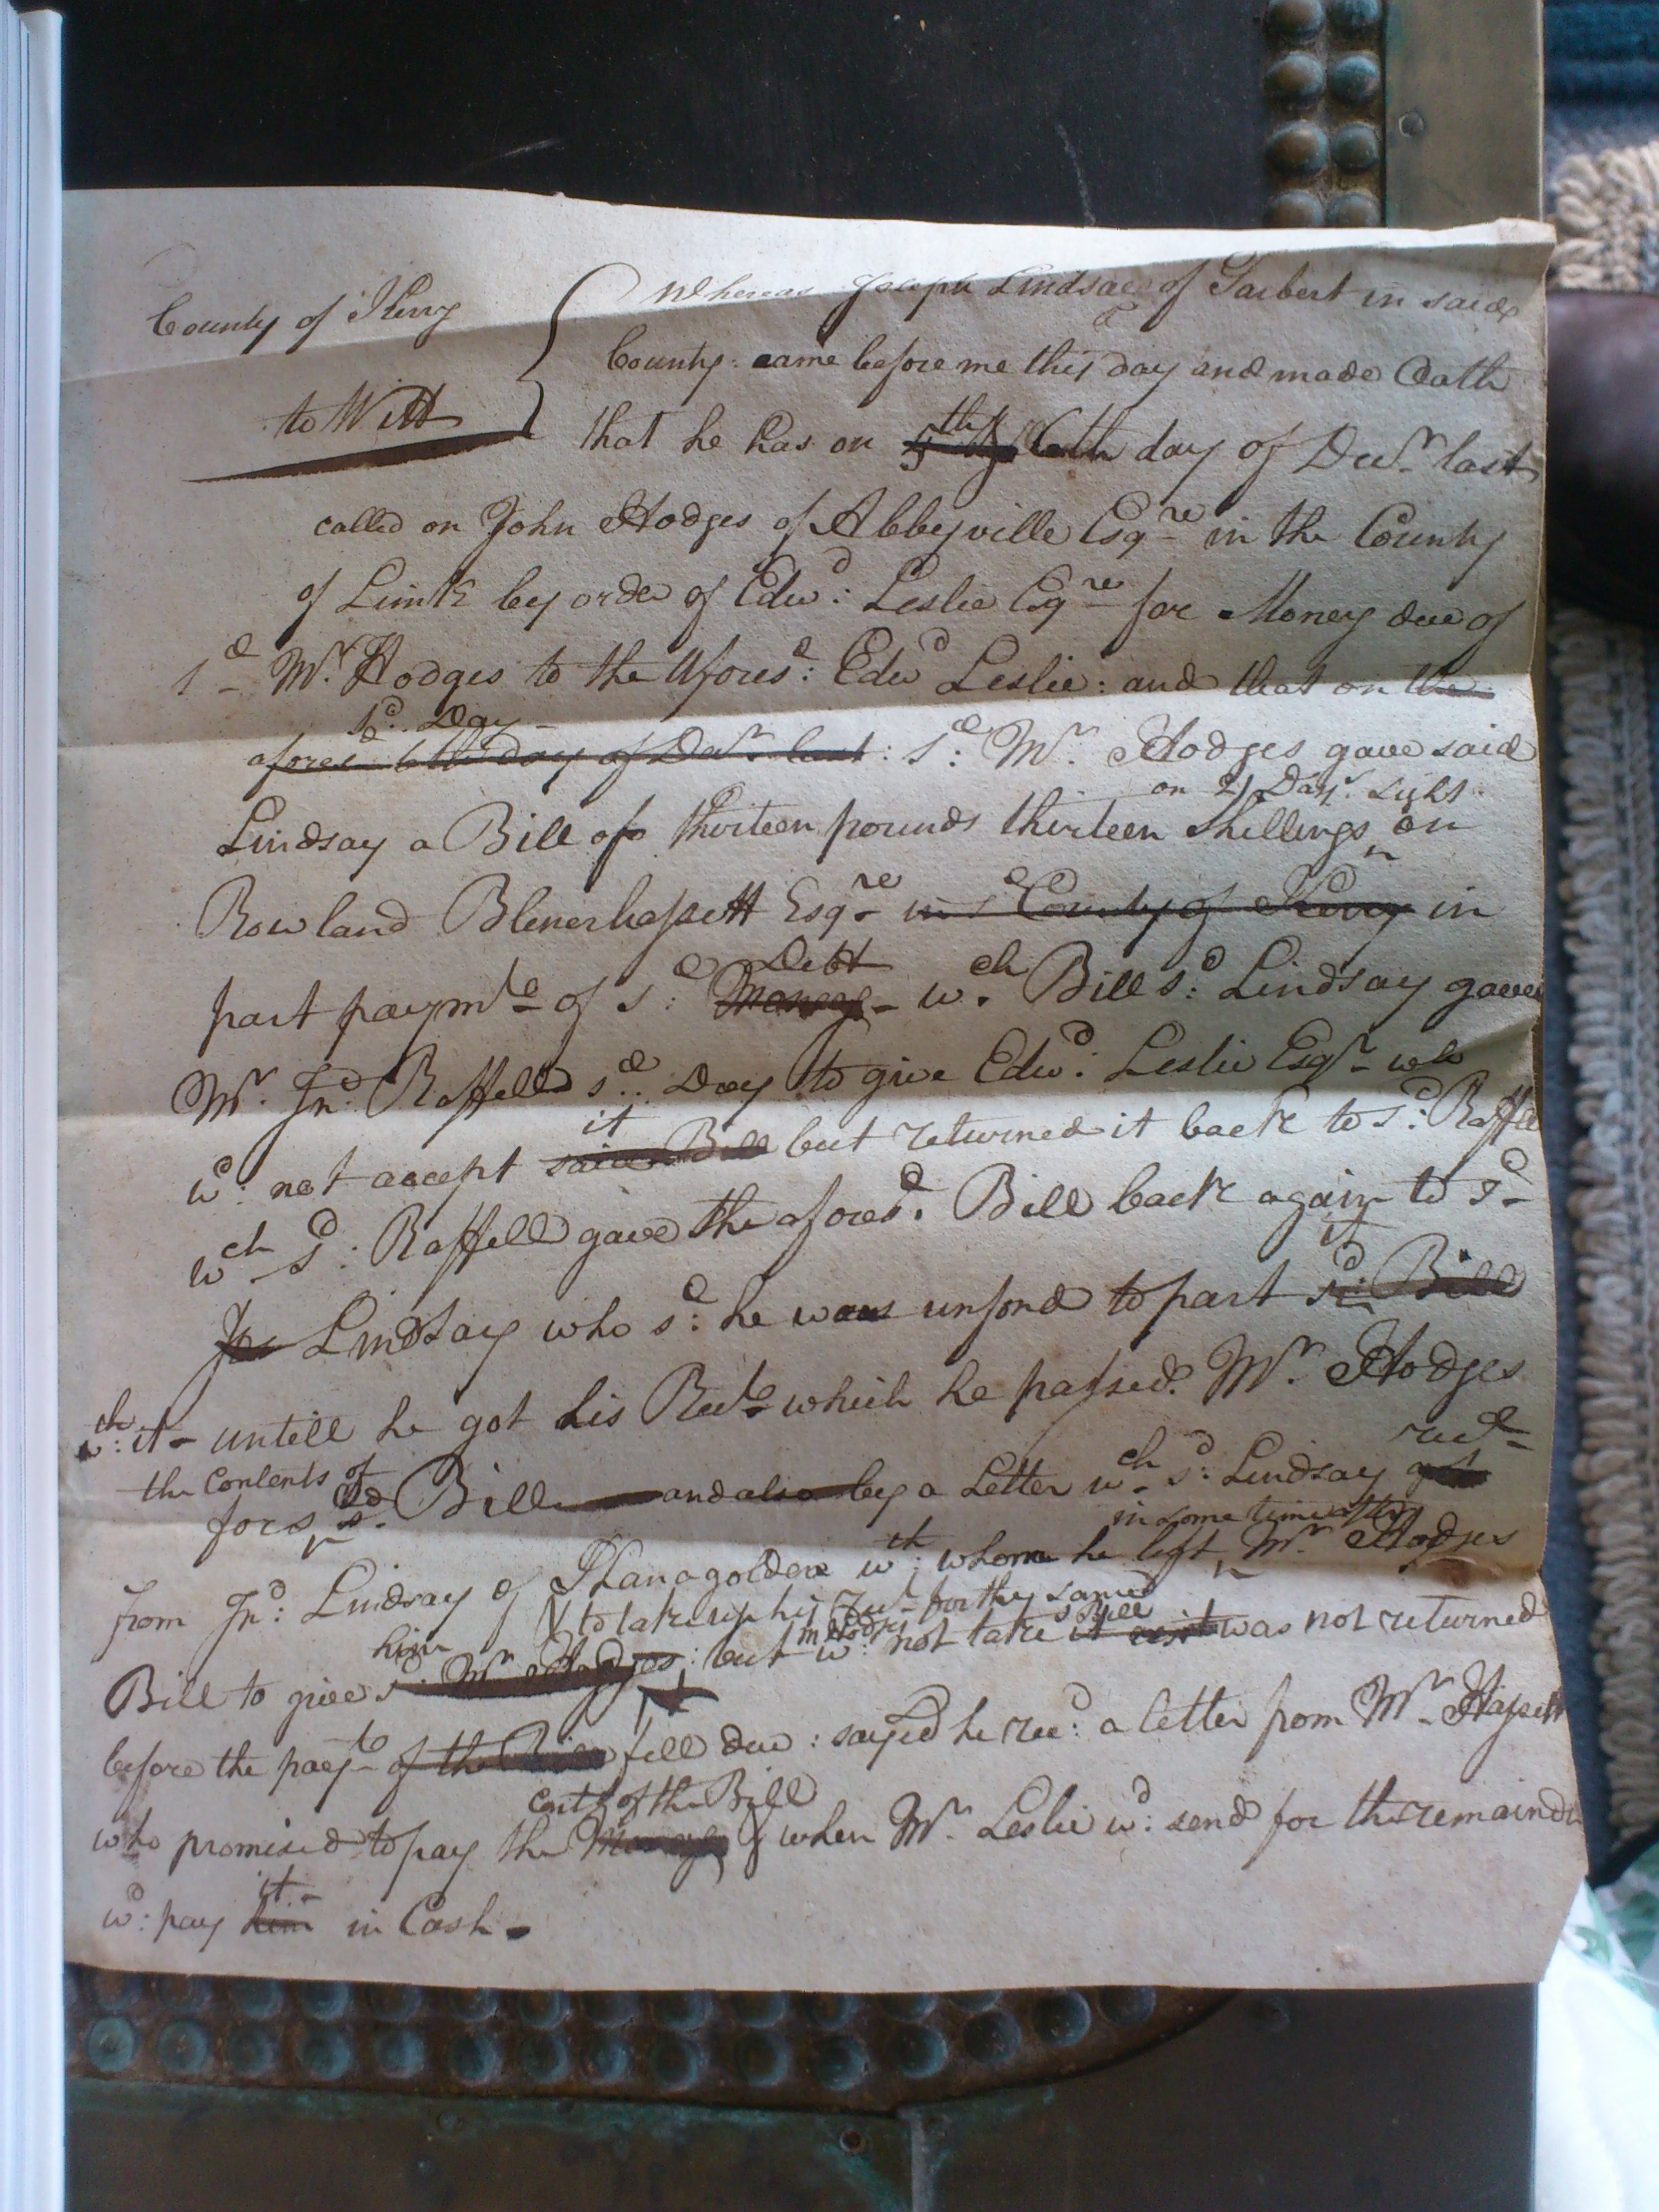 County of Kerry
to Witt
Whereas Joseph Lindsay of Tarbert in said
County: came before me this day and made Oath
that he has on 5th 6th day of Decr last
called on John Hodges of Abbyville Esqre in the County
of Limk by order of Edwd: Leslie Esqre for Money due of
sd Mr. Hodges to the afores.d: Edwd Leslie: and that on the
sd. Day
aforesd 6th day of Decr last: sd: Mr. Hodges gave said
on 21 Days. sight
Lindsay a Bill of thirteen pounds thirteen Shillings on
Rowland Blenerhassett Esqre in sd County of Kerry in
Debt
part paymte of sd: Money - wch. Bill sd: Lindsay gave
Mr. Jnd: Raffell sd.. Day to give Edwd: Leslie Esqr who
it
wd: not accept said Bill but returned it back to sd: Raffell
wch sd: Raffell gave the aforesd. Bill back again to sd
it
Jos Lindsay who sd: he was unfond to part sd: Bill
wth: it - untill he got his Rect which he passed Mr. Hodges
the Contents of recd
for sd Bill and also by a Letter wch sd: Lindsay got
in some time after
from Jnd: Lindsay of Shanagolden wth: whom he left Mr Hodges
to take up his for they same
him Mr Hodges sd Bill
Bill to give sd Mr Hodges: but wd: not take it as it was not returned
before the payt of the Bill fell due: sayed he recd: a letter from Mr Hassett
Conts of the Bill
who promised to pay the Money & when Mr. Leslie wd: send for the remainder
it -
wd: pay him in Cash -